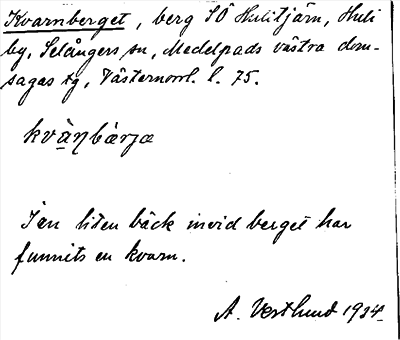 Kvarnberget, berg SÖ Hulitjärn, Huli
by, Selångers sn, Medelpads västra dom-
sagas tg, Västernorrl. l. 75.
kvàṇbærjæ
I en liten bäck invid berget har
funnits en kvarn.
A. Vestlund 1934